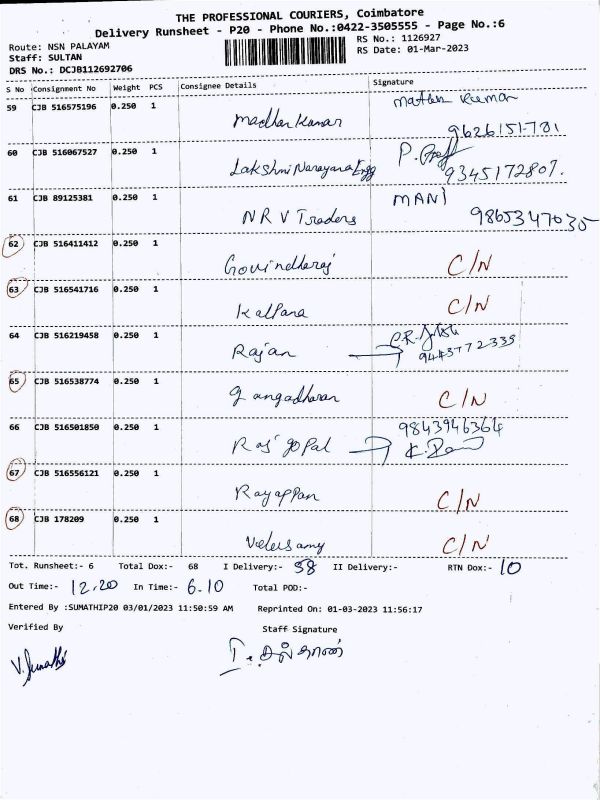 THE PROFESSIONAL COURIERS, Coimbatore
Delivery Runsheet - P20 - Phone No.:0422-3505555 - Page No.:6
Route: NSN PALAYAM RS No.: 1126927
Staff: SULTAN RS Date: 01-Mar-2023
DRS No.: DCJB112692706
S No Consignment No Weight PCS Consignee Details Signature
59 CJB 516575196 0.250 1 Madhan Kumar
9626151-781
60 CJB 516067527 0.250 1 Lakshmi Narayana Engg
9345172807.
61 CJB 89125381 0.250 1 NRV Traders MANI
9865347035
62 CJB 516411412 0.250 1 Govindharaj C/N
63 CJB 516541716 0.250 1 Kalpana C/N
64 CJB 516219458 0.250 1 Rajan
9443772335
65 CJB 516538774 0.250 1 gangadharan C/N
66 CJB 516501850 0.250 1 Raj gopal 9843946364
67 CJB 516556121 0.250 1 Rayappan C/N
68 CJB 178209 0.250 1 Velusamy C/N
Tot. Runsheet:- 6 Total Dox:- 68 I Delivery:- 58 II Delivery:- RTN Dox:- 10
Out Time:- 12.20 In Time:- 6.10 Total POD:-
Entered By :SUMATHIP20 03/01/2023 11:50:59 AM Reprinted On: 01-03-2023 11:56:17
Verified By Staff Signature
V. Sumathi I. சுல்தான்